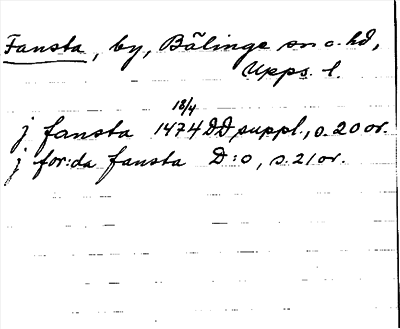 Fansta, by, Bälinge sn o. hd,
Upps. l.
18/4
j fansta 1474 DD suppl., s. 20 or.
j for:da fansta D:o, s. 21 or.